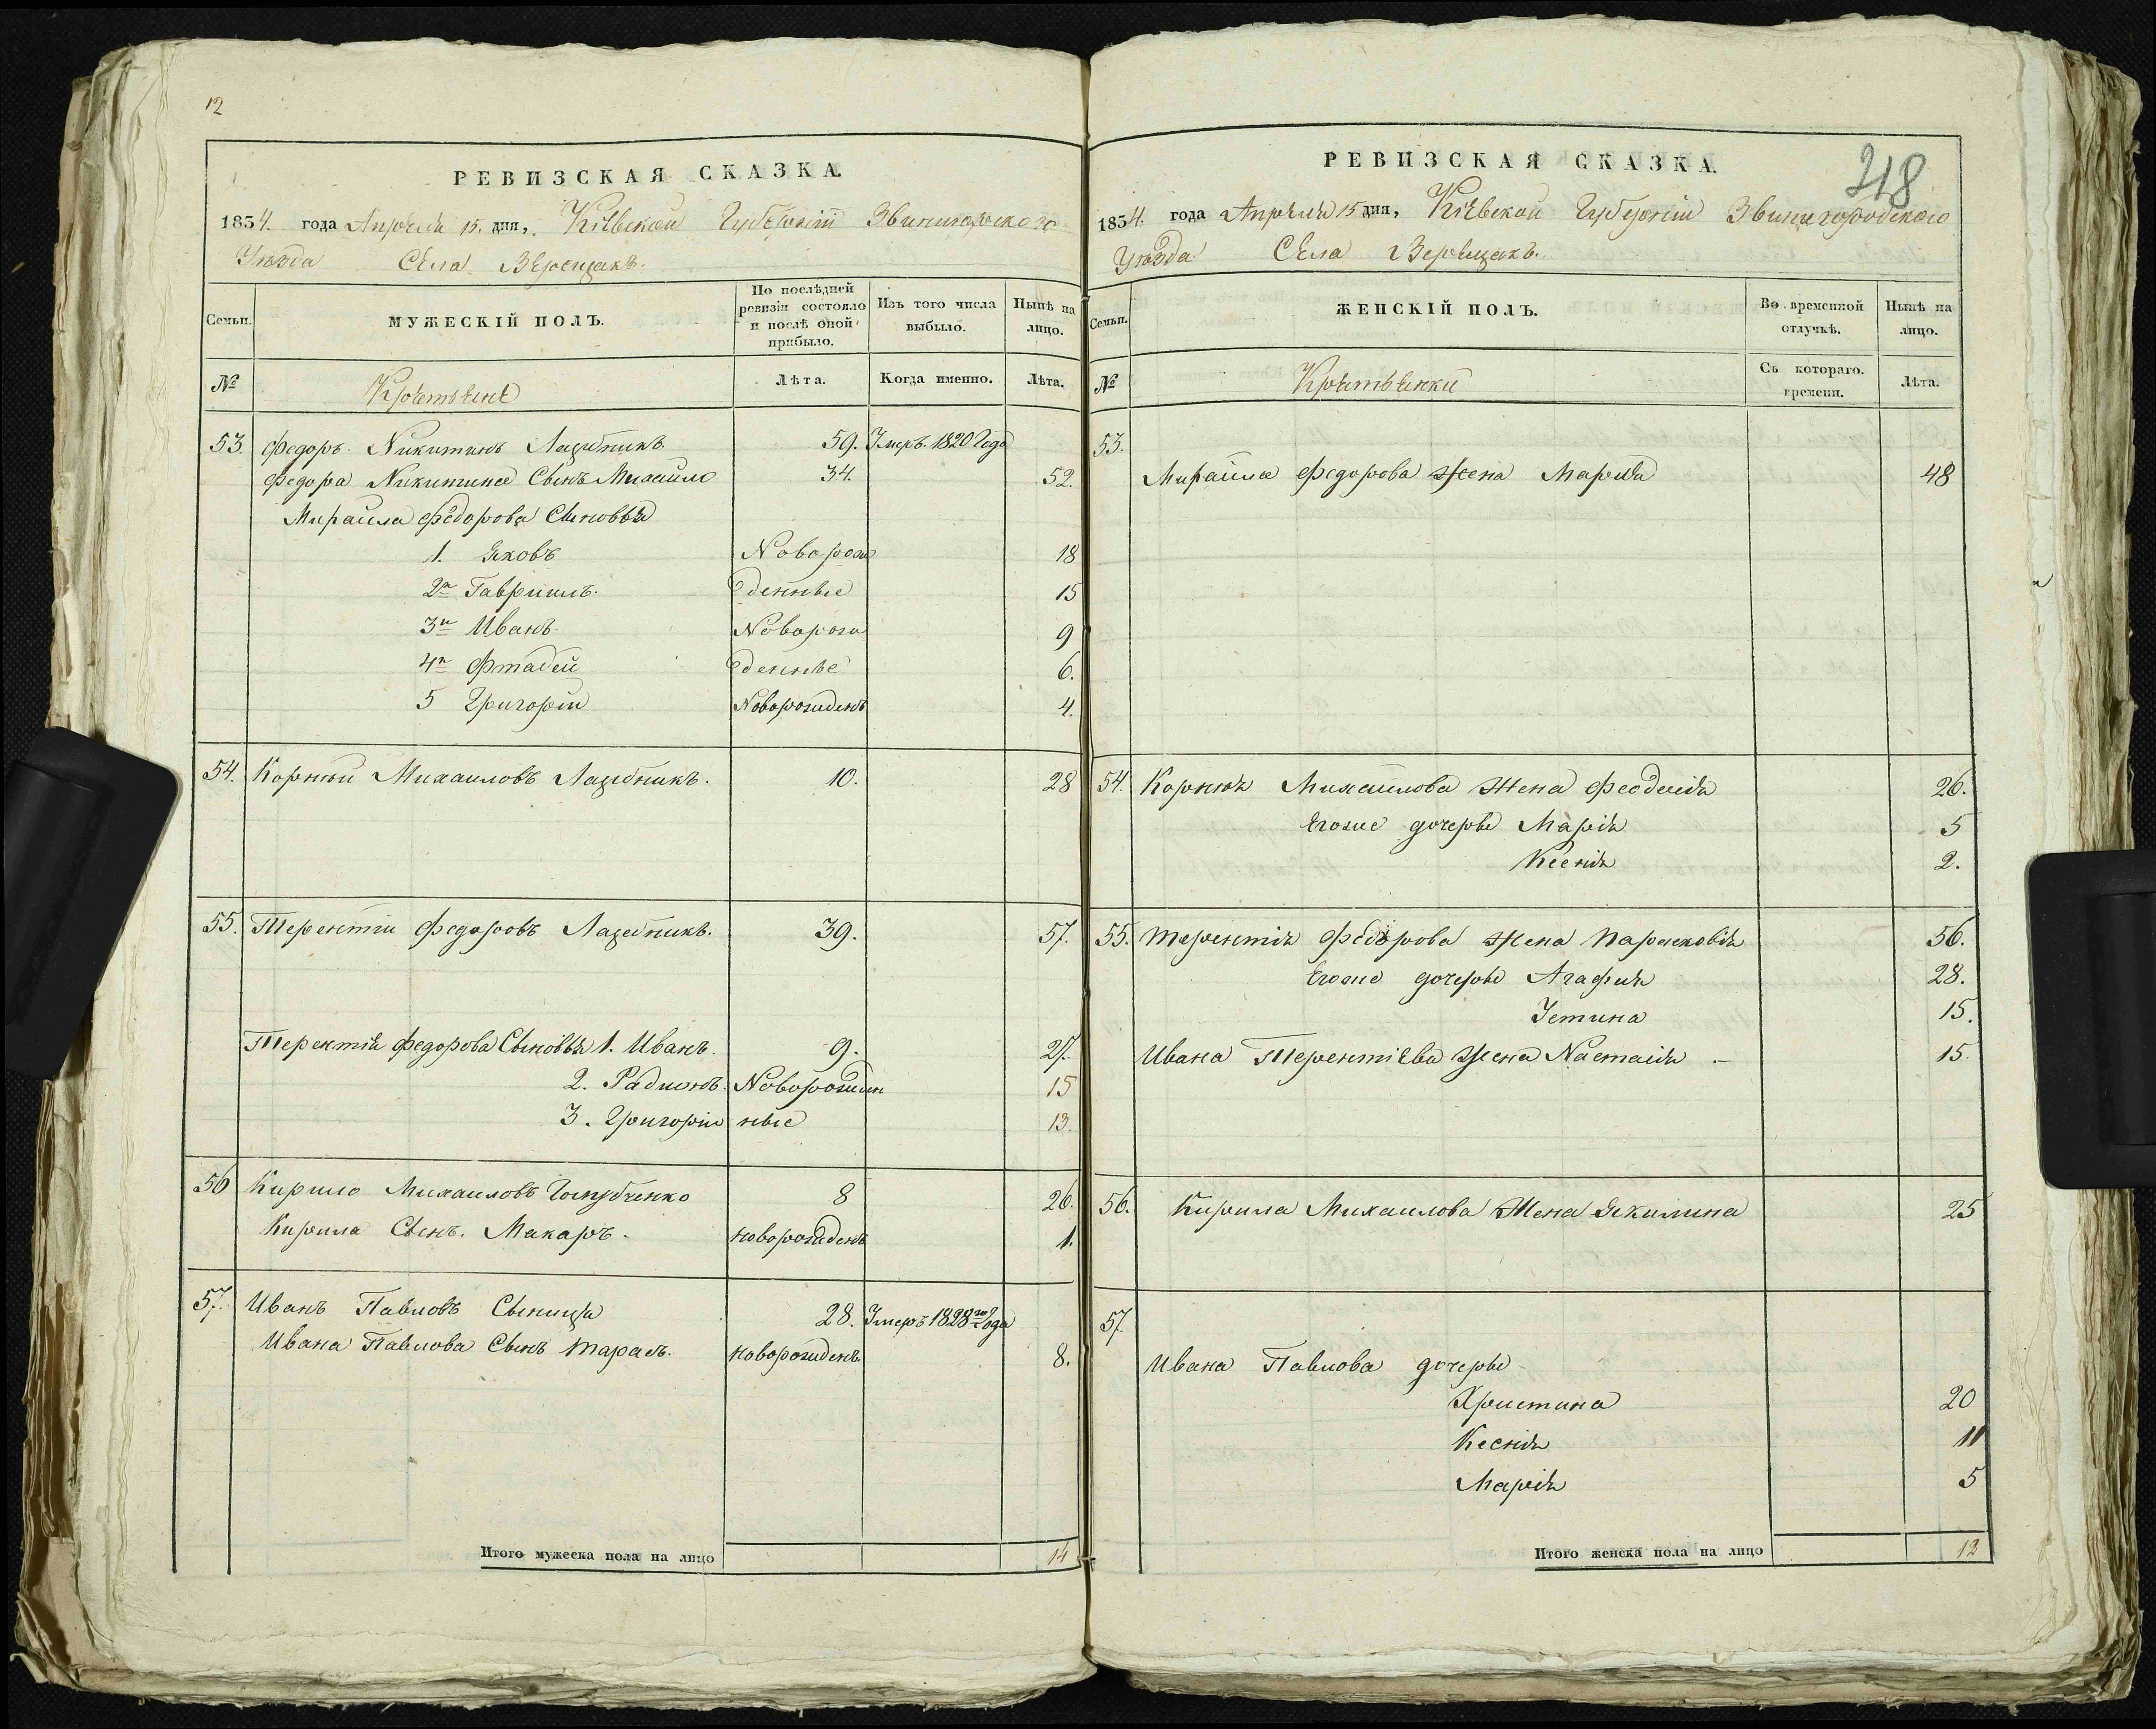 12
РЕВИЗСКАЯ СКАЗКА.
1834. года Апреля 15. дня, Кіевской Губерніи Звинигорского
Уезда Села Верещакъ.
Семьи. МУЖЕСКІЙ ПОЛЪ. По послѣдней ревизіи состояло и послѣ оной прибыло. Изъ того числа выбыло. Нынѣ на лицо.
№ Крестьяне Лѣта. Когда именно. Лѣта.
53. Федоръ Никитинъ Лазебникъ. 59. Умеръ. 1820 Года
Федора Никитина Сынъ Михайло 34. 52.
Михаила Федорова Сыновья
1. Яковъ Новорож 18
2й Гавриилъ. денные 15
3й Иванъ. Новорож 9
4й Фтадей денные 6.
5 Григорій Новорожденъ 4.
54. Корній Михаиловъ Лазебникъ. 10. 28
55. Терентій Федоровъ Лазебникъ. 39. 57.
Терентія Федорова Сыновья 1. Иванъ. 9. 27.
2. Радионъ. Новорожден 15
3. Григорій ные 13.
56 Кирило Михаиловъ Голубченко 8 26.
Кирила Сынъ. Макаръ. новорожденъ 1.
57. Иванъ Павловъ Сыница 28. Умеръ 1828го Года
Ивана Павлова Сынъ Тарасъ. новорожденъ. 8.
Итого мужеска пола на лицо 14
218
РЕВИЗСКАЯ СКАЗКА.
1834. года Апреля 15 дня, Кіевской Губерніи Звинигородского
Уезда Села Верещакъ.
Семьи. ЖЕНСКІЙ ПОЛЪ. Во временной отлучкѣ. Нынѣ на лицо.
№ Крестьянки Съ котораго. времени. Лѣта.
53.
Михайла Федорова Жена Марія 48
54. Корнія Михайлова Жена Феодосія 26.
Егоже дочеры Марія 5
Ксенія 2.
55. Терентія Федорова Жена Парасковія 56.
Егоже дочеры Агафія 28.
Устина 15.
Ивана Терентіева Жена Настасія - 15.
56. Кирила Михаилова Жена Якилина 25
57.
Ивана Павлова дочеры
Христина 20
Ксенія 11
Марія 5
Итого женска пола на лицо 12